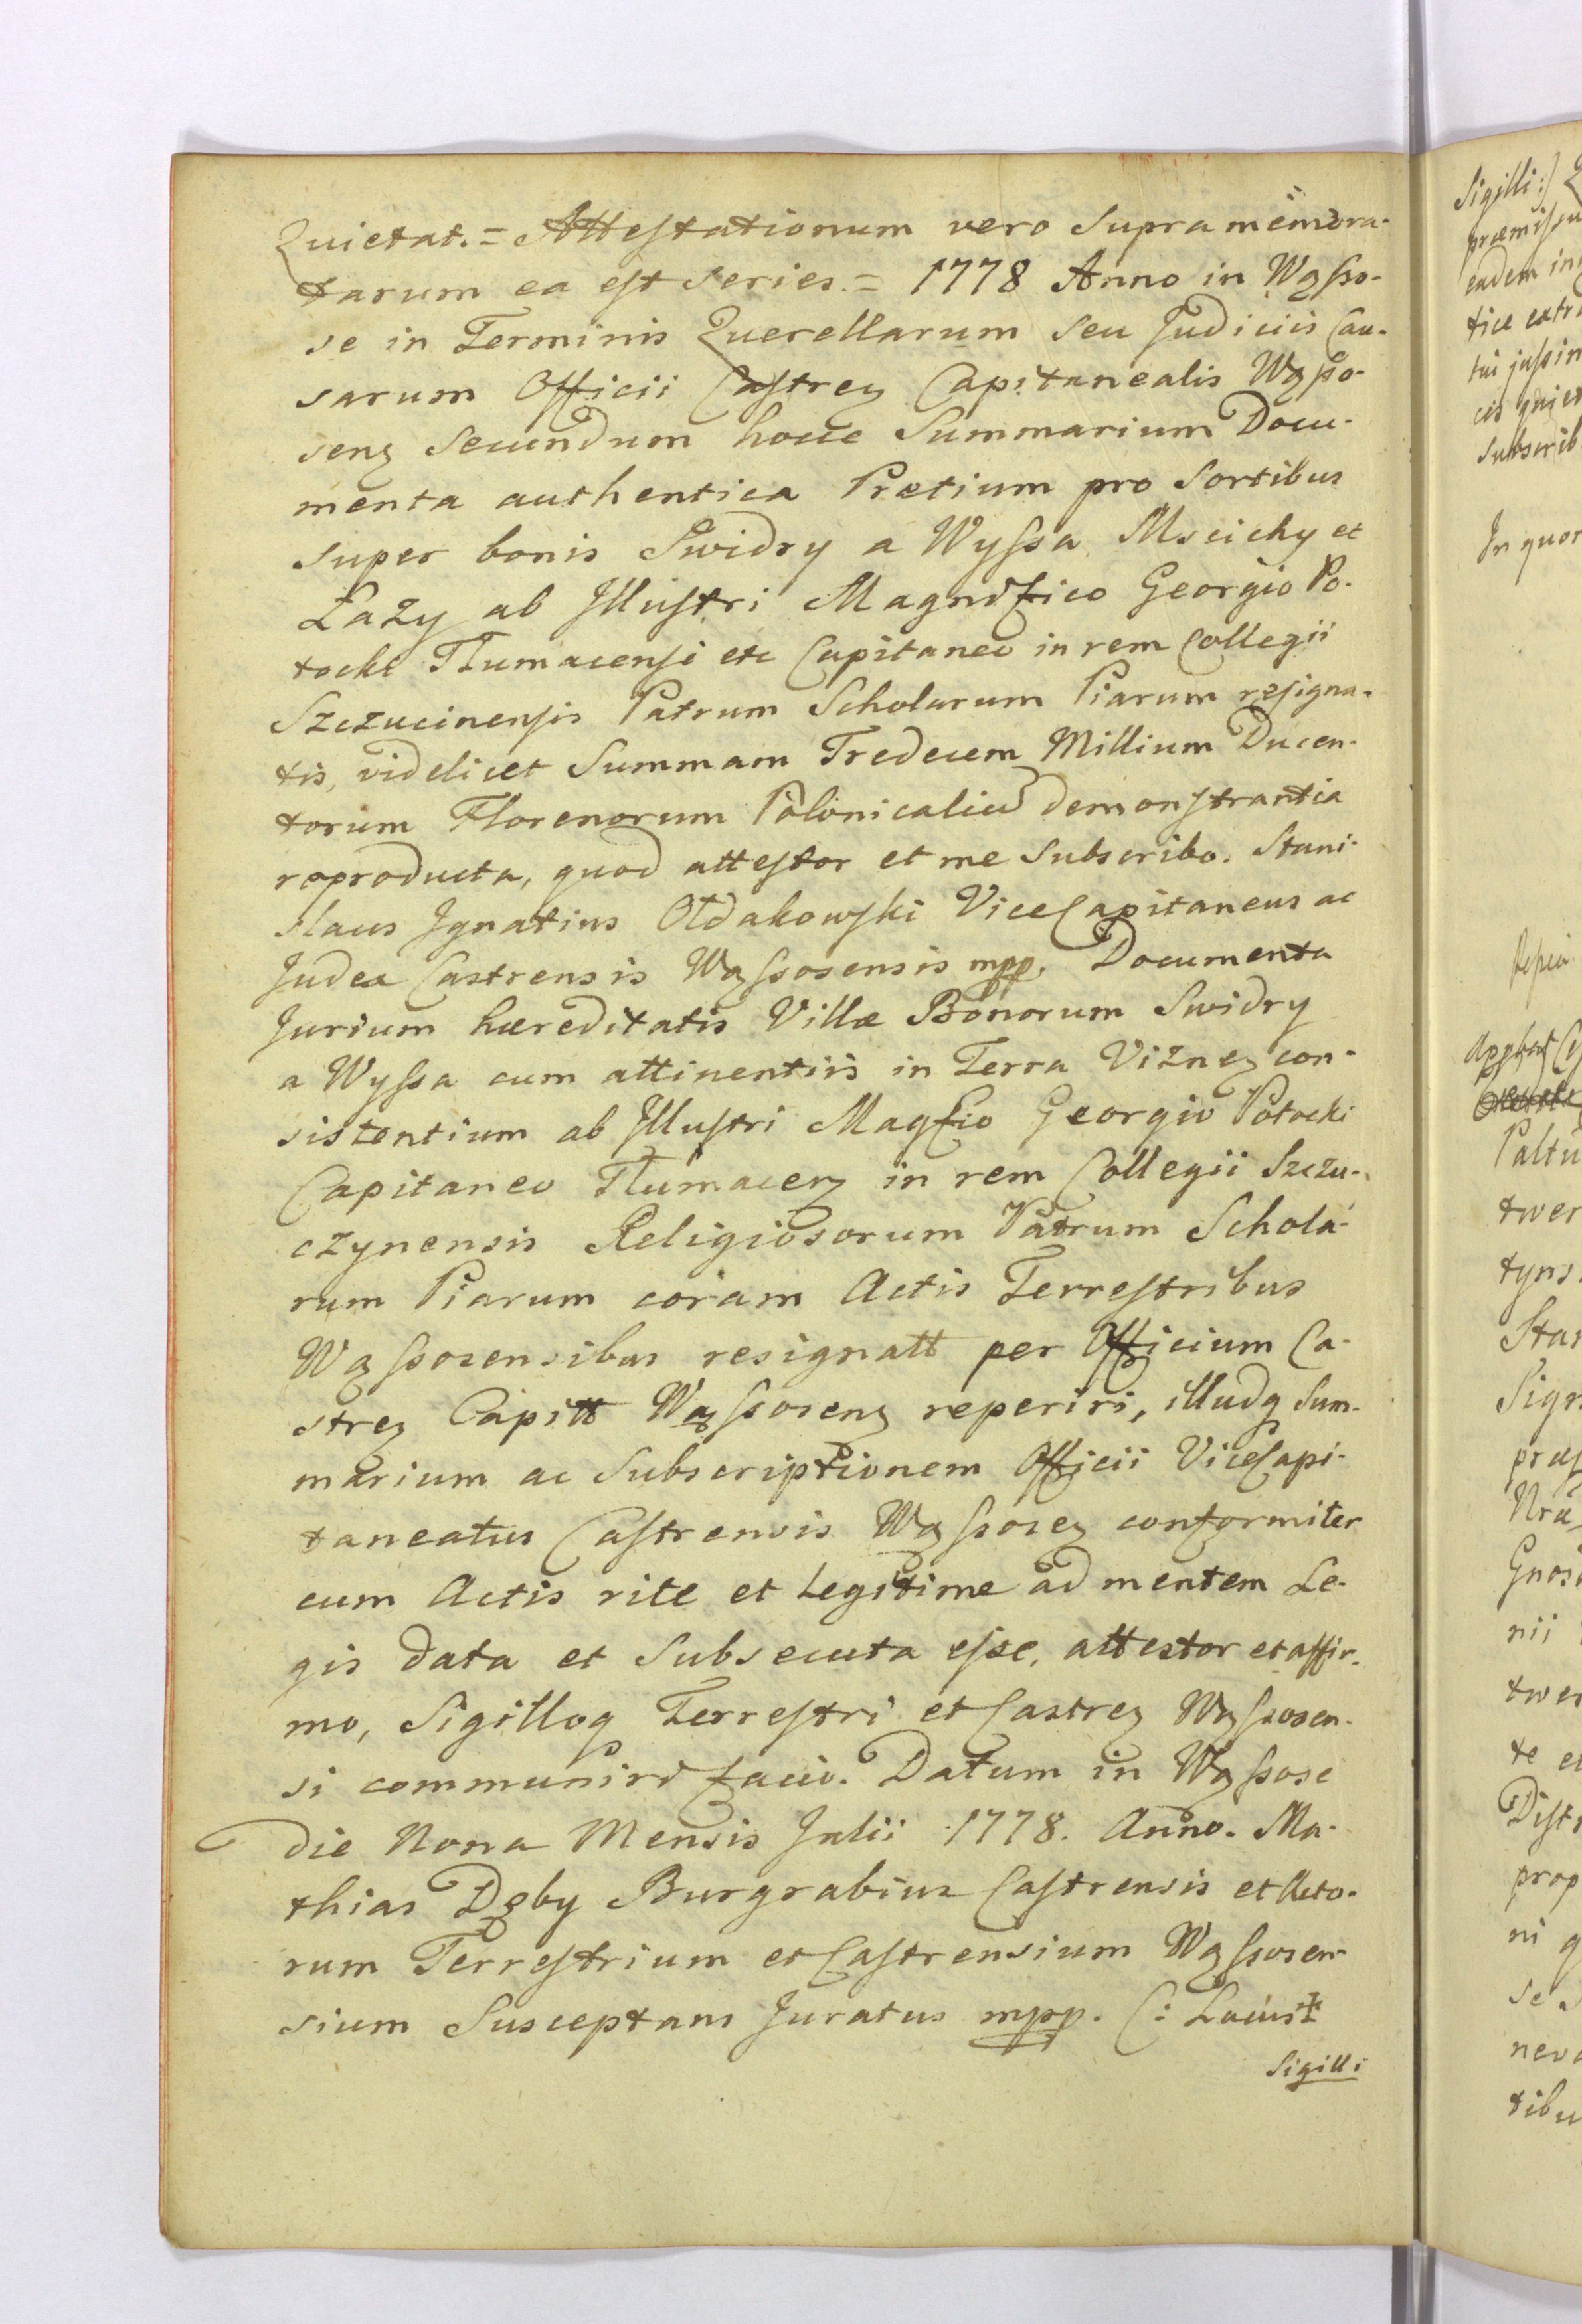 Quietat. = Attestationum vero supra memora-
tarum ea est series. = 1778 Anno in Wąsso-
se in Terminis Querellarum seu Judiciis Cau-
sarum Officii Castreꝫ Capitanealis Wąsso-
senꝫ secundum hocce Summarium Docu-
menta authentica Pretium pro Sortibus
super bonis Swidry a Wyssa, Mscichy et
Łazy ab Illustri Magnifico Georgio Po-
tocki Tłumacensi etc Capitaneo in rem Collegii
Szczucinensis Patrum Scholarum Piarum resigna-
tis, videlicet Summam Tredecem Millium Ducen-
torum Florenorum Polonicaliu demonstrantia
reproducta, quod attestor et me Subscribo. Stani-
slaus Ignatius Ołdakowski ViceCapitaneus ac
Judex Castrensis Wąssosensis mpp. Documenta
Jurium hæreditatis Villæ Bonorum Swidry
a Wyssa cum attinentiis in Terra Vizneꝫ con-
sistentium ab Illustri Magfico Georgio Potocki
Capitaneo Tłumacenꝫ in rem Collegii Szczu-
czynensis Religiosorum Patrum Schola-
rum Piarum coram Actis Terrestribus
Wąssosensibus resignatt per Officium Ca-
streꝫ Capitt Wąssosenꝫ reperiri, illudq Sum-
marium ac Subscriptionem Officii ViceCapi-
taneatus Castrensis Wąssoseꝫ conformiter
cum Actis rite et legitime ad mentem Le-
gis data et Subsecuta esse, attestor et affir-
mo, Sigilloq Terrestri et Castreꝫ Wąssosen-
si communiri facio. Datum in Wąssose
die Nona Mensis Julii 1778. Anno. Ma-
thias Dęby Burgrabius Castrensis et Acto-
rum Terrestrium et Castrensium Wąssosen-
sium Susceptans Juratus mpp. (: Locus
Sigilli
Sigilli:)
eadem in
tice extr
Subscrib
In quor
Paltu
twer
tyns
Stan
Sign
nii
te et
Distr
prop
ni q
se s
tibu